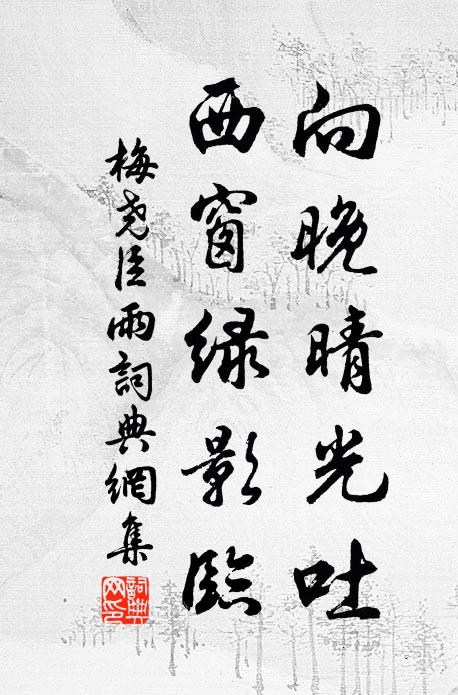 向晚晴光吐
西窗绿影临
梅尧臣雨詞典網集
詞典文印